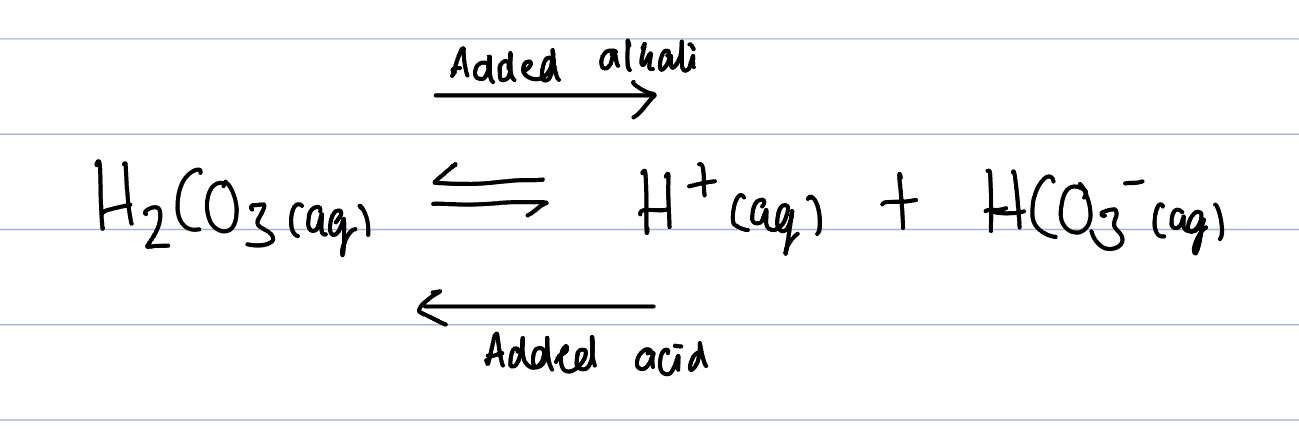 Added alkali
→
H₂CO₃(aq) ⇌ H⁺(aq) + HCO₃⁻(aq)
←
Added acid